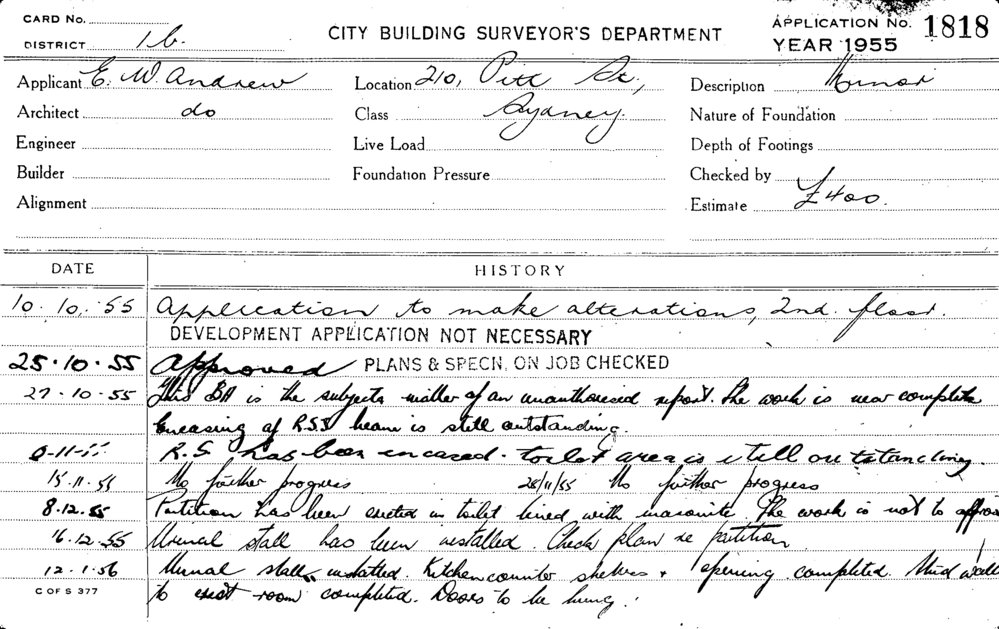 CARD No.
DISTRICT 1b.
CITY BUILDING SURVEYOR'S DEPARTMENT
APPLICATION No. 1818
YEAR 1955
Applicant E. W. Andrew Location 210, Pitt St, Description Minor
Architect do Class Sydney. Nature of Foundation
Engineer Live Load Depth of Footings
Builder Foundation Pressure Checked by
Alignment Estimate £400.
DATE HISTORY
10.10.55 Application to make alterations, 2nd. floor.
DEVELOPMENT APPLICATION NOT NECESSARY
25.10.55 Approved PLANS & SPECN. ON JOB CHECKED
27.10.55 This BA is the subject matter of an unauthorised report. The work is near complete
Encasing of RSJ beam is still outstanding.
R.S. has been encased. toilet area is still outstanding.
15.11.55 No further progress 28/11/55 No further progress
8.12.55 Partition has been erected in toilet lined with masonite. The work is not to
16.12.55 Urinal stall has been installed. Check plan re partition
12.1.56 Urinal stall installed. Kitchen counter shelves + opening completed.
to room completed. Doors to be hung.
C OF S 377